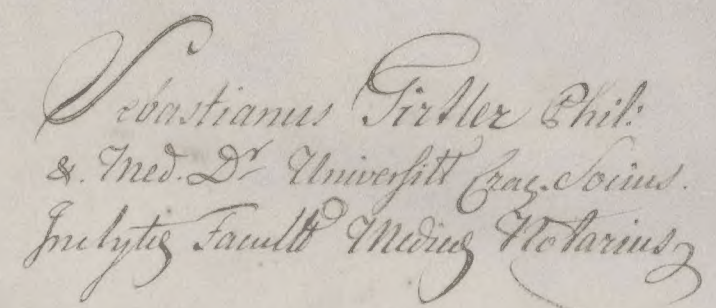 Sebastianus Girtler Phil:
& Med. Dr Universitt Crac. Socius.
Inclytę Facultt Medicę Notarius